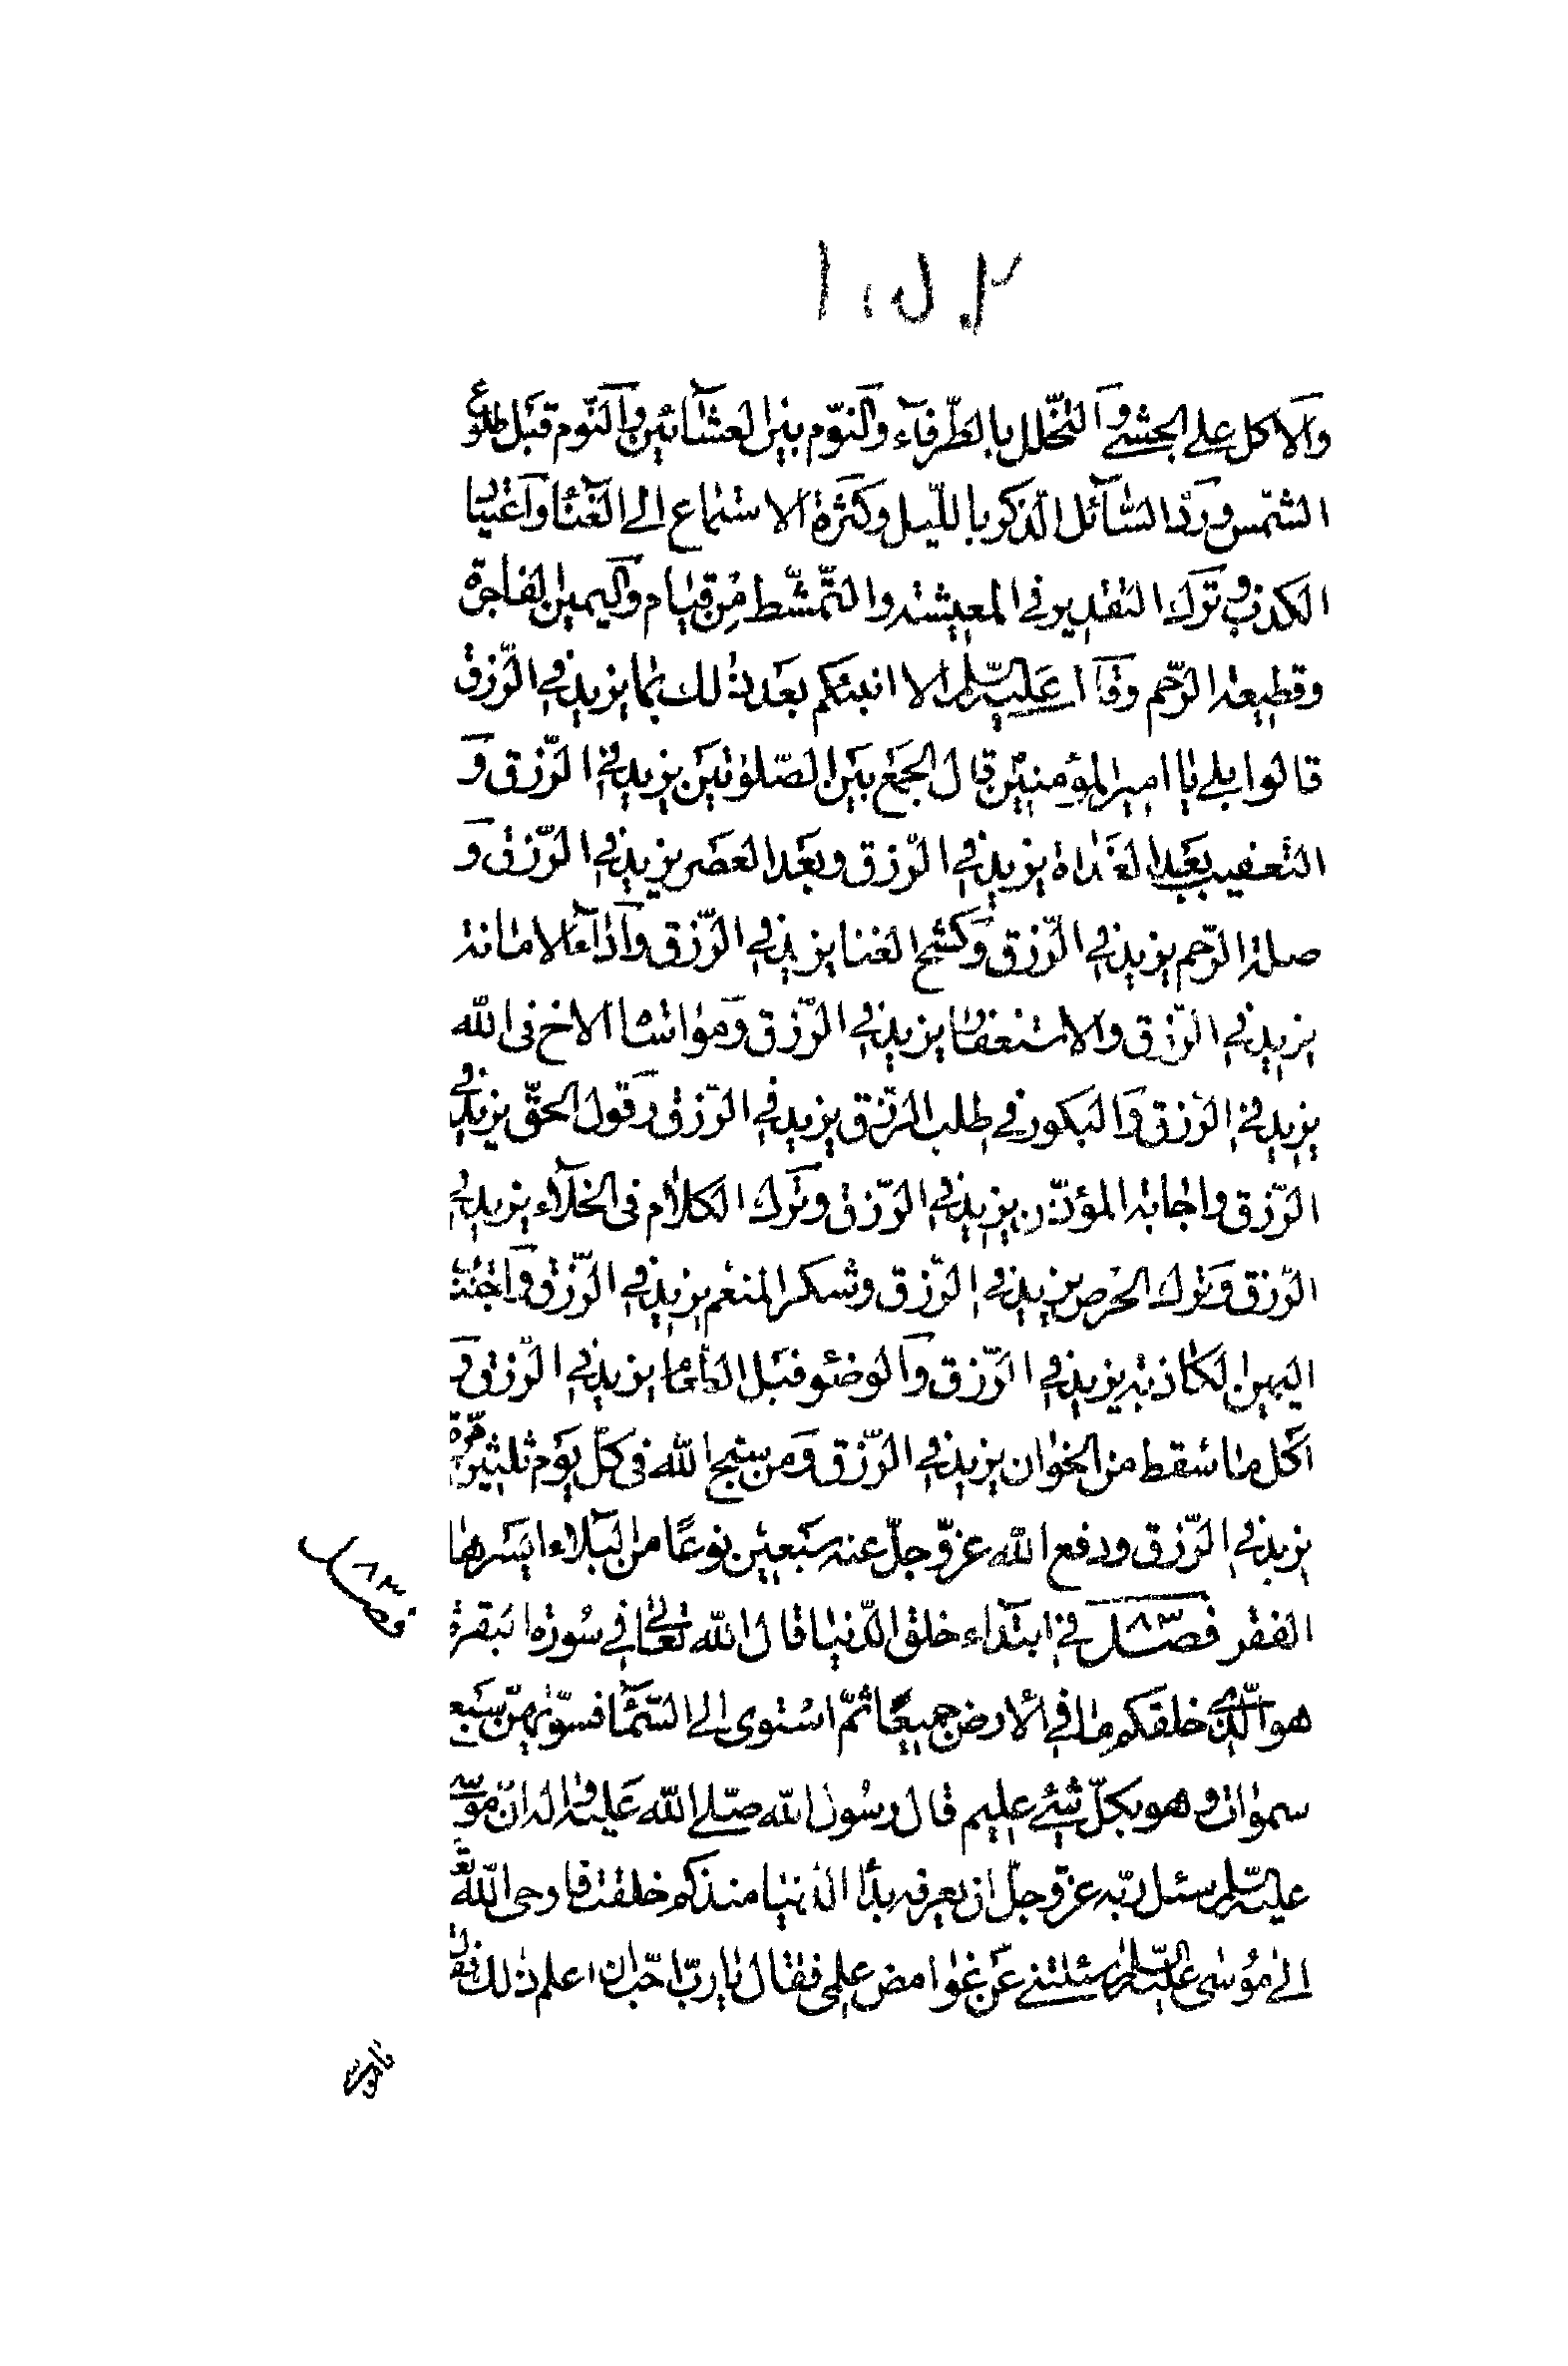 والاكل على الجشى والتخلل بالطرفآء والنوم بين العشائين والنوم قبل طلوع
الشمس ورد السآئل الذكر بالليل وكثرة الاستماع الى الغناء واعتياد
الكذب وترك التقدير فى المعيشة والتمشط من قيام واليمين الفاجرة
وقطيعة الرحم وقال عليه السلم الا انبئكم بعد ذلك بما يزيد فى الرزق
قالوا بلى يا امير المؤمنين قال الجمع بين الصلوتين يزيد فى الرزق و
التعقيب بعد الغداة يزيد فى الرزق وبعد العصر يزيد فى الرزق و
صلة الرحم يزيد فى الرزق وكشح الغنا يزيد فى الرزق واداء الامانة
يزيد فى الرزق والاستغفار يزيد فى الرزق ومواساة الاخ فى الله
يزيد فى الرزق والبكور فى طلب الرزق يزيد فى الرزق وقول الحق يزيد فى
الرزق واجابة المؤذن يزيد فى الرزق وترك الكلام فى الخلآء يزيد فى
الرزق وترك الحرص يزيد فى الرزق وشكر المنعم يزيد فى الرزق واجتناب
اليمين الكاذبة يزيد فى الرزق والوضوء قبل الطعام يزيد فى الرزق و
اكل ما سقط من الخوان يزيد فى الرزق ومن سبح الله فى كل يوم ثلثين مرة
يزيد فى الرزق ودفع الله عز وجل عنه سبعين نوعًا من البلاء ايسرها
فصل ٨٣
الفقر فصل ٨٣ فى ابتداء خلق الدنيا قال الله تعالى فى سورة البقرة
هو الذى خلقكم ما فى الارض جميعًا ثم استوى الى السمآء فسويهن سبع
سموات وهو بكل شئ عليم قال رسول الله صلى الله عليه واله ان موسى
عليه السلم سئل ربه عز وجل ان يعرفه بدأ الدنيا منذ كم خلقت فاوحى الله تعالى
الى موسى عليه السلم سئلتنى عن غوامض علمى فقال يا رب احب ان اعلم ذلك فقال
يا موسى